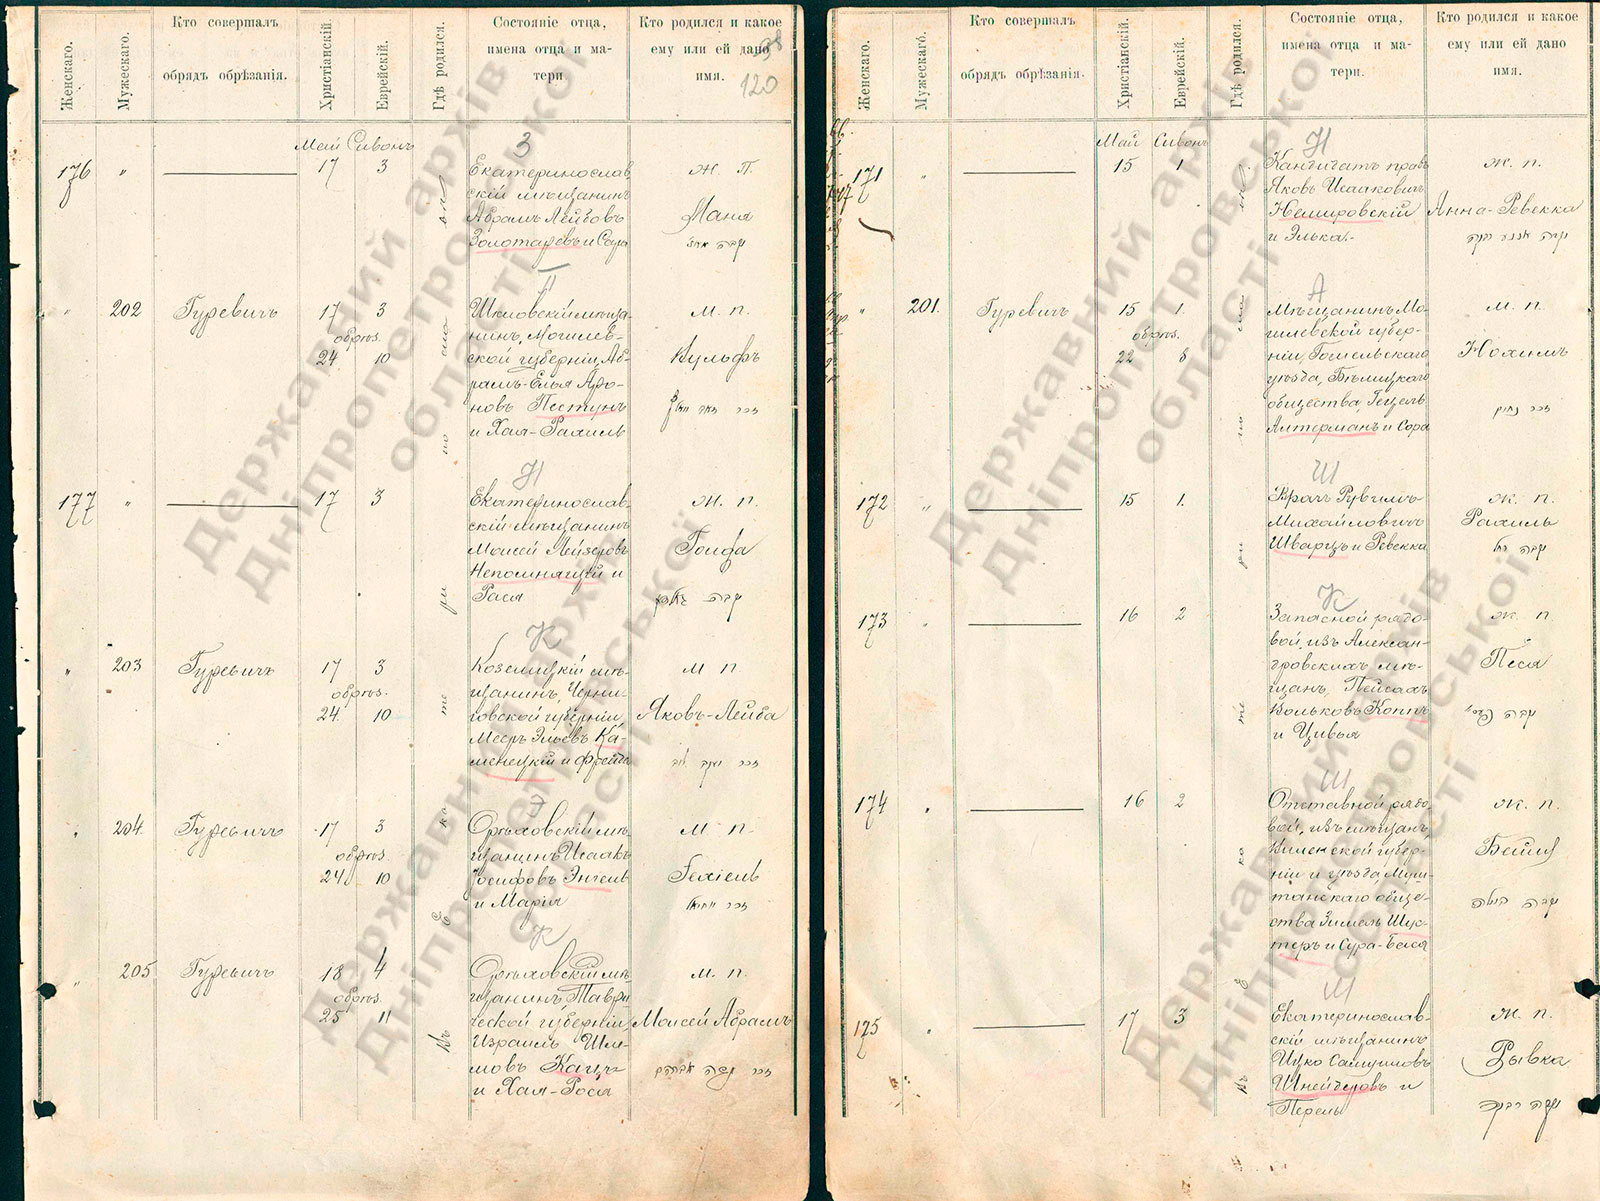 Женскаго.
Мужескаго.
Кто совершалъ
обрядъ обрѣзанія.
Христіанскій.
Еврейскій.
Гдѣ родился.
Состояніе отца,
имена отца и ма-
тери.
Кто родился и какое
ему или ей дано
имя.
98
120
Май Сивонъ
176 " 17 3
З
Екатеринослав
скій мѣщанинъ
Абрамъ Лейбовъ
Золотаревъ и Сора
Ж. П.
Маня
" 202 Гуревичъ 17 3
обрѣз.
24 10
П
Шкловскій мѣща
нинъ, Могилев-
ской губерніи, Аб-
рамъ-Элья Аро-
новъ Пестунъ
и Хая-Рахиль
М. п.
Вульфъ
177 " 17 3
Н
Екатеринослав
скій мѣщанинъ
Моисей Лейзеровъ
Непомнящій и
Рася
Ж. п.
Голфа
" 203 Гуревичъ 17 3
обрѣз.
24 10
К
Козелецкій мѣ-
щанинъ, Черни-
говской губерніи,
Мееръ Эльевъ Ка-
менецкій и Фрейда
М п.
Яковъ-Лейба
זכר יעקב ליב
" 204 Гуревичъ 17 3
обрѣз.
24 10
Э
Орѣховскій мѣ-
щанинъ Исаакъ
Іосифовъ Энгель
и Марія
М п.
Іехіель
זכר יחיאל
" 205 Гуревичъ 18 4
обрѣз.
25 11
К
Орѣховскій мѣ
щанинъ Таври
ческой губерніи,
Израиль Шле-
мовъ Кацъ
и Хая-Рося
М. п.
Моисей Абрамъ
זכר משה אברהם
Въ Е ка те ри но сла вѣ
Женскаго.
Мужескаго.
Кто совершалъ
обрядъ обрѣзанія.
Христіанскій.
Еврейскій.
Гдѣ родился.
Состояніе отца,
имена отца и ма-
тери.
Кто родился и какое
ему или ей дано
имя.
Май Сивонъ
171 " 15 1
Н
Кандидатъ правъ
Яковъ Исааковичъ
Немировскій
и Элька.-
Ж. п.
Анна-Ревекка
" 201. Гуревичъ 15 1.
обрѣз.
22 8
А
Мѣщанинъ Мо-
гилевской губер-
ніи, Гомельскаго
уѣзда, Бѣлицкаго
общества, Гецель
Алтерманъ и Сора
М. п.
Нохимъ
זכר נחום
172 " 15 1.
Ш
Врачъ Рувимъ
Михайловичъ
Шварцъ и Ревекка
Ж. п.
Рахиль
נקבה רחל
173 " 16 2
К
Запасной рядо-
вой, изъ Алексан-
дровскихъ мѣ-
щанъ, Пейсахъ
Вольковъ Коппъ
и Цивья
Ж п.
Песя
174 " 16 2
Ш
Отставной рядо
вой, изъ мѣщанъ,
Виленской губер-
ніи и уѣзда Муш-
танскаго обще-
ства Зимель Шус-
теръ и Сура-Бася
Ж. п.
Бейля
נקבה ביילה
175 " 17 3
Ш
Екатеринослав-
скій мѣщанинъ
Ицко Самуиловъ
Шнейдеровъ и
Перель
Ж. п.
Рывка
נקבה רבקה
Въ Е ка те ри но сла вѣ
Державний архів
Дніпропетровської
області
Державний архів
Дніпропетровської
області
Державний архів
Дніпропетровської
області
Державний архів
Дніпропетровської
області